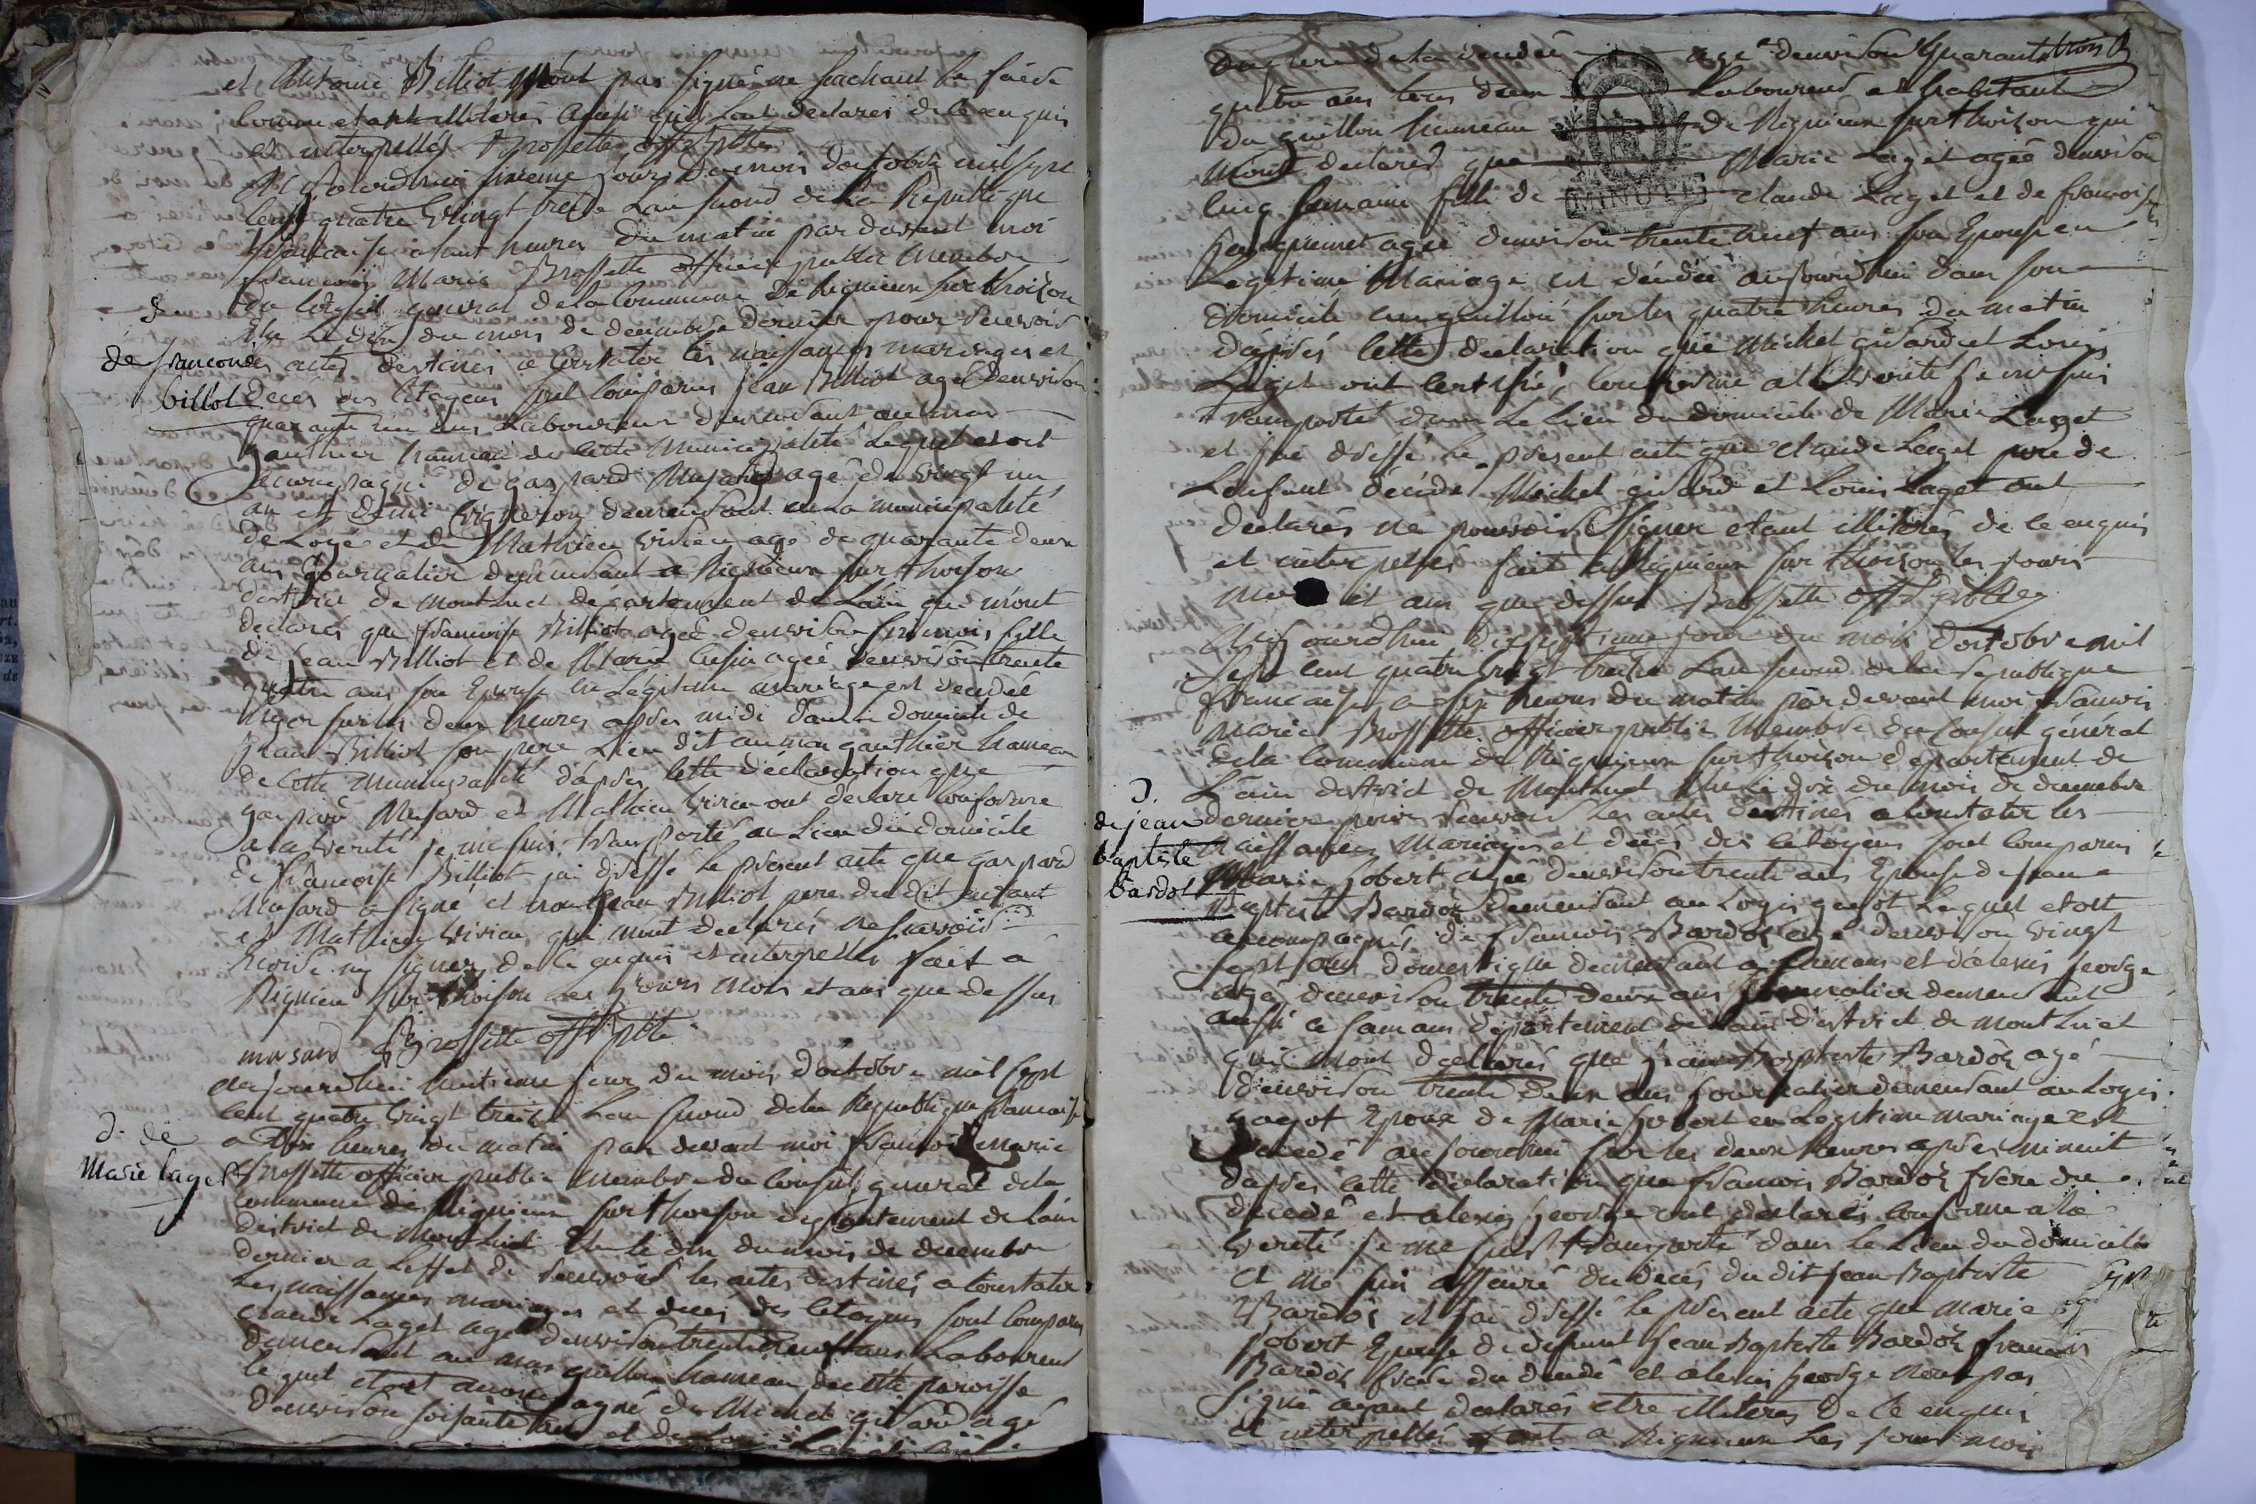 et Antoine Billiot n'ont pas signé ne sachant le faire
comme etant illiterés ainsi quils sont declares de ce enquis
et interpellés Brossette off. pblic
Aujourdhui sixieme jour du mois doctobre mil sept
cent quatre vingt treize lan second de la Republique
francaise a huit heures du matin par devant moi
francois Marie Brossette officier public membre
du conseil general de la commune de Rignieux sur thoison
elu le dix du mois de decembre dernier pour recevoir
les actes destines a constater les naissances mariages et
deces des citoyens sont comparus jean Billiot agé denviron
quarante un ans laboureur demeurant au mas
gauthier hameau de cette municipalité lequel etoit
accompagné de gaspard Musard agé de vingt un
an et demi vigneron demeurant en la municipalité
de Loye et de Mathieu vivien agé de quarante deux
ans journalier demeurant a Rignieux sur thoison
district de Montluel departement de Lain qui mont
declarés que francoise Billiot agée denviron six mois fille
de jean Billiot et de Marie agée denviron trente
quatre ans son Epouse en Legitime mariage est decedée
hyer sur les deux heures apres midi dans le domicile de
jean Billiot son pere Lieu dit au mas gauthier hameau
de cette municipalité dapres cette declaration que
gaspard Musard et Mathieu vivien ont declaré conforme
a la verité je me suis transporté au Lieu du domicile
de francoise Billiot jai dressé le present acte que gaspard
Musard a signé et non jean Billiot pere dudit enfant
et Mathieu vivien qui mont declarés ne savoir
ecrire ny signer de ce enquis et interpellés fait a
Rignieu sur thoison les jours mois et ans que dessus
musard Brossette off. pblic
de francoise
billot
aujourdhui huitieme jour du mois doctobre mil sept
cent quatre vingt treize lan second de la Republique francaise
a dix heures du matin par devant moi francois marie
Brossette officier public membre du conseil general de la
commune de Rignieux sur thoison departement de lain
district de Montluel elu le dix du mois de decembre
dernier a leffet de recevoir les actes destinés a constater
les naissances mariages et deces des citoyens sont comparus
claude Laget agé denviron trente neuf ans Laboureur
demeurant au mas guillon hameau de cette paroisse
le quel etoit accompagné de Michel girard agé
denviron soixante ans et de Louis Laget agé
d. de
Marie laget
agé denviron quarante trois
quatre ans tous deux Laboureurs et habitant
du guillon hameau de Rignieux sur thoison qui
mont declarés que Marie Laget agée denviron
cinq semaine fille de claude Laget et de francoise
agée denviron trente huit ans son Epouse en
Legitime Mariage est décédée aujourdhui dans son
domicile au guillon sur les quatre heures du matin
dapres cette declaration que Michel girard et Louis
Laget ont certifié conforme a la verité je me suis
transporté dans le Lieu du domicile de Marie Laget
et jai dressé le present acte que claude Laget pere de
Lenfant décédé Michel girard et Louis Laget ont
declarés ne pouvoir signer etant illiterés de ce enquis
et interpellés fait a Rignieux sur thoison les jours
mois et ans que dessus Brossette off. pblic
MINUTE
Aujourdhui dixseptieme jour du mois doctobre mil
sept cent quatre vingt treize lan second de la republique
francaise a six heures du matin par devant moi francois
marie Brossette officier public membre du conseil général
de la commune de Rignieux sur thoison departement de
Lain district de Montluel elu le dix du mois de decembre
dernier pour recevoir les actes destinés a constater les
naissances Mariages et décés des citoyens sont comparus
Marie jobert agée denviron trente ans Epouse de jean
Baptiste Bardoz demeurant au Logis gagot Lequel etoit
accompagnés de francois Bardoz agé denviron vingt
sept ans domestique demeurant a samans et dalexis george
agé denviron trente deux ans journalier demeurant
aussi a samans departement de lain district de montluel
qui mont declarés que jean Baptiste Bardoz agé
denviron trente deux ans journalier demeurant au Logis
gagot Epoux de Marie jobert en Legitime mariage est
decedé aujourdhui sur les deux heures apres minuit
dapres cette declaration que francois Bardoz frere du
decedé et alexis george ont declarés conforme a la
verité je me suis transporté dans le Lieu du domicile
et me suis assuré du decés du dit jean Baptiste
Bardoz et jai dressé le present acte que marie
jobert Epouse de defunt jean Baptiste Bardoz francois
Bardoz frere du decedé et alexis george nont pas
signé ayant declarés etre illiterés de ce enquis
et interpellés fait a Rignieux les jours mois
D.
de jean
baptiste
bardot